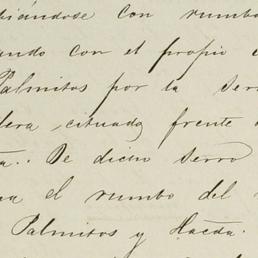 biándose con rumbo
ando con el propio
Palmitos por la Serr
dera, situada frente
a.. De dicho Serro
ua el rumbo del
Palmitos y Hacda.